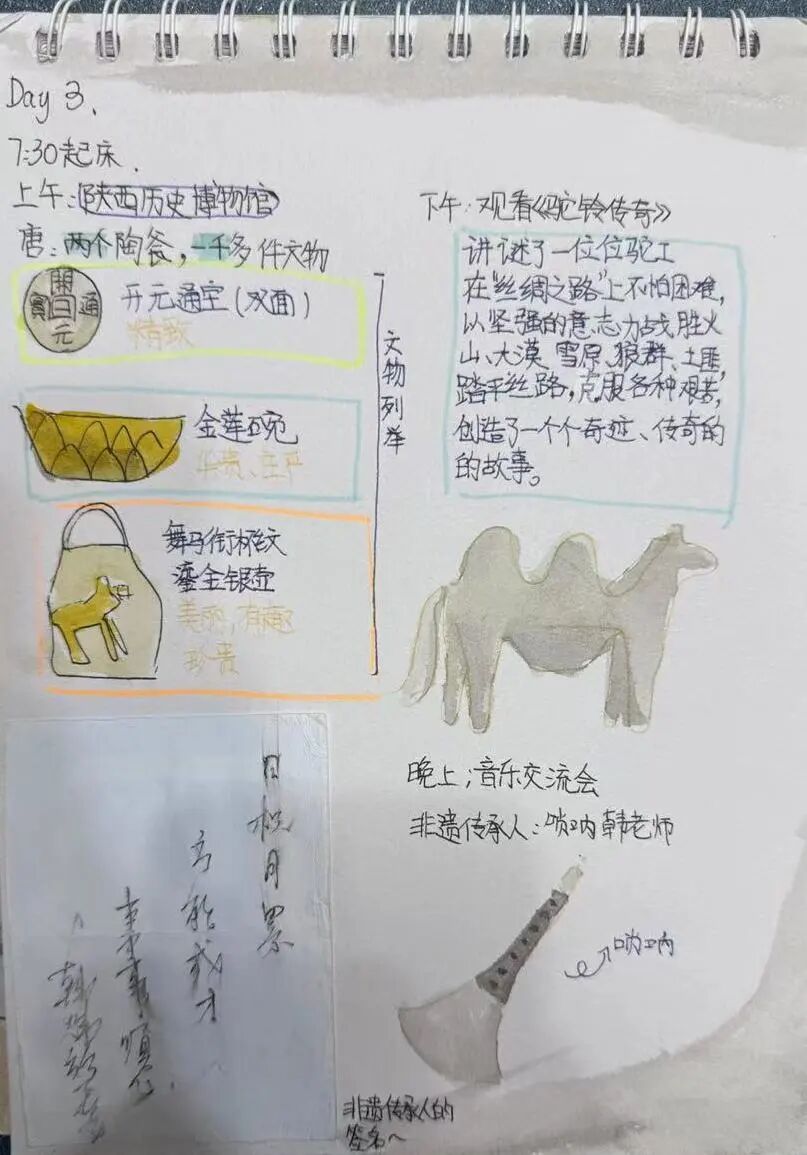 Day 3.
7:30起床.
上午:陕西历史博物馆
唐:两个陶瓮,一千多件文物
開
寳 通
元
开元通宝(双面)
精致
金莲碗
华贵、庄严
舞马衔杯纹
鎏金银壶
美丽,有趣
珍贵
文物列举
下午:观看《驼铃传奇》
讲述了一位位驼工
在“丝绸之路”上不怕困难,
以坚强的意志力战胜火
山、大漠、雪原、狼群、土匪,
踏平丝路,克服各种艰苦,
创造了一个个奇迹、传奇的
的故事。
晚上:音乐交流会
非遗传承人:唢呐韩老师
唢呐
日积月累
方能成才
事事顺心
非遗传承人的
签名~